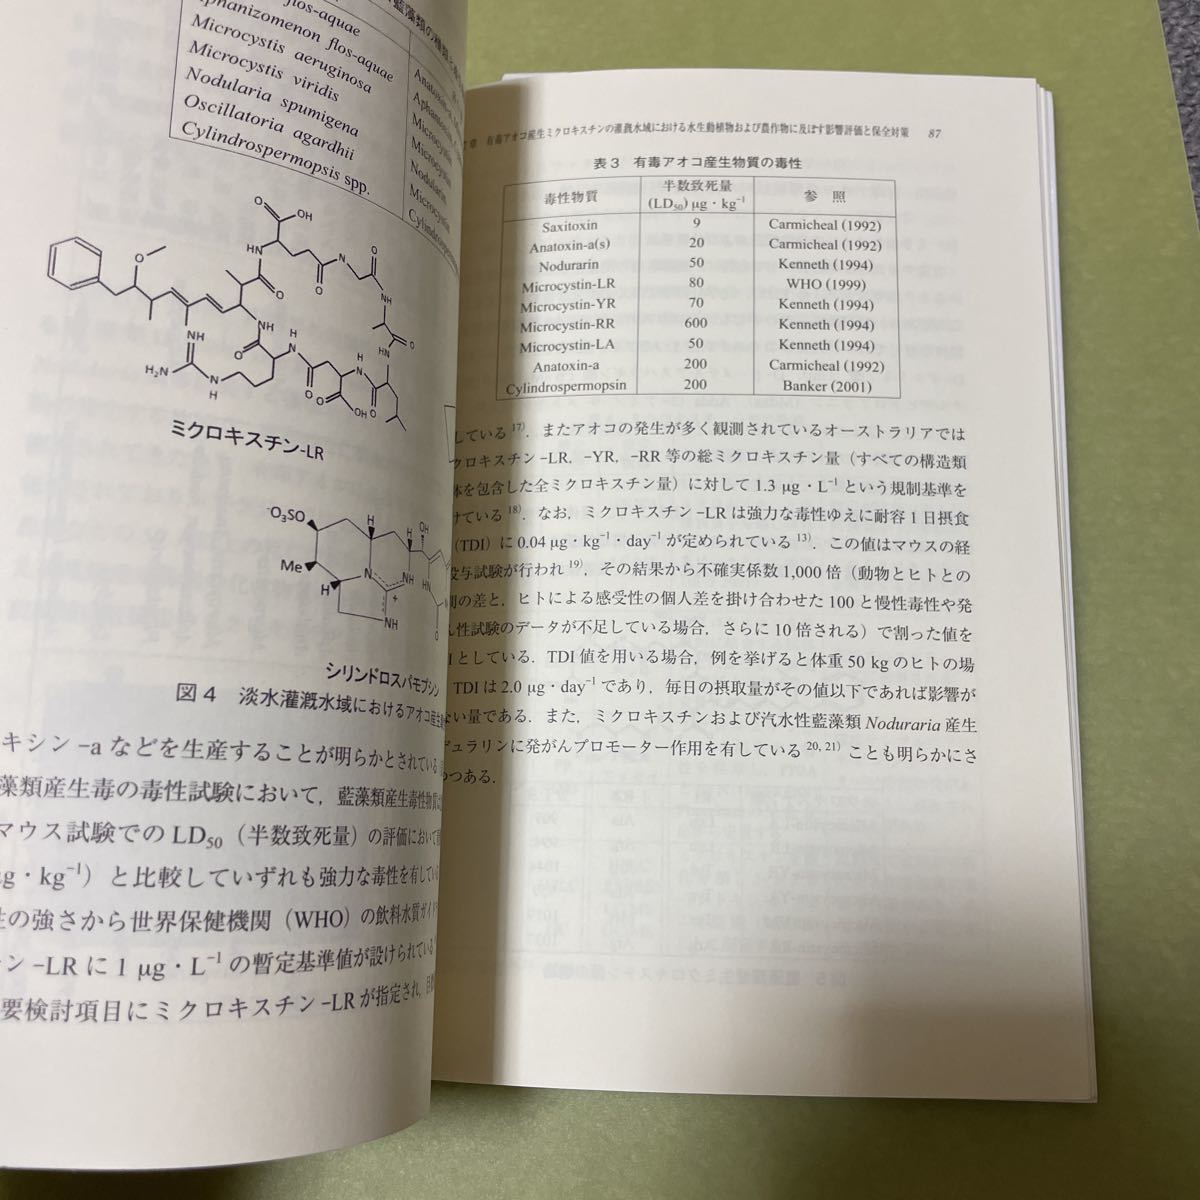 flos-aquae
藍藻類の種類と
Aphanizomenon flos-aquae
Microcystis aeruginosa
Microcystis viridis
Nodularia spumigena
Oscillatoria agardhii
Cylindrospermopsis spp.
Anatoxin-a
Aphantoxin
Microcystin
Microcystin
Nodularin
Microcystin
Cylindrosperm
ミクロキスチン-LR
シリンドロスパモプシン
図4 淡水灌漑水域におけるアオコ産生
キシン-aなどを生産することが明らかとされている
藻類産生毒の毒性試験において,藍藻類産生毒性物質
マウス試験でのLD₅₀(半数致死量)の評価において
µg・kg⁻¹)と比較していずれも強力な毒性を有してい
性の強さから世界保健機関(WHO)の飲料水質ガイド
ン-LRに1 µg・L⁻¹の暫定基準値が設けられている
要検討項目にミクロキスチン-LRが指定され,
章 有毒アオコ産生ミクロキスチンの灌漑水域における水生動植物および農作物に及ぼす影響評価と保全対策 87
表3 有毒アオコ産生物質の毒性
毒性物質 半数致死量 (LD₅₀) µg・kg⁻¹ 参 照
Saxitoxin 9 Carmicheal (1992)
Anatoxin-a(s) 20 Carmicheal (1992)
Nodurarin 50 Kenneth (1994)
Microcystin-LR 80 WHO (1999)
Microcystin-YR 70 Kenneth (1994)
Microcystin-RR 600 Kenneth (1994)
Microcystin-LA 50 Kenneth (1994)
Anatoxin-a 200 Carmicheal (1992)
Cylindrospermopsin 200 Banker (2001)
している¹⁷⁾.またアオコの発生が多く観測されているオーストラリアでは
クロキスチン-LR,-YR,-RR等の総ミクロキスチン量(すべての構造類
体を包含した全ミクロキスチン量)に対して1.3 µg・L⁻¹という規制基準を
けている¹⁸⁾.なお,ミクロキスチン-LRは強力な毒性ゆえに耐容1日摂食
(TDI)に0.04 µg・kg⁻¹・day⁻¹が定められている¹³⁾.この値はマウスの経
投与試験が行われ¹⁹⁾,その結果から不確実係数1,000倍(動物とヒトとの
間の差と,ヒトによる感受性の個人差を掛け合わせた100と慢性毒性や発
ん性試験のデータが不足している場合,さらに10倍される)で割った値を
Iとしている.TDI値を用いる場合,例を挙げると体重50 kgのヒトの場
TDIは2.0 µg・day⁻¹であり,毎日の摂取量がその値以下であれば影響が
ない量である.また,ミクロキスチンおよび汽水性藍藻類Noduraria産生
デュラリンに発がんプロモーター作用を有している²⁰,²¹⁾ことも明らかにさ
つつある.